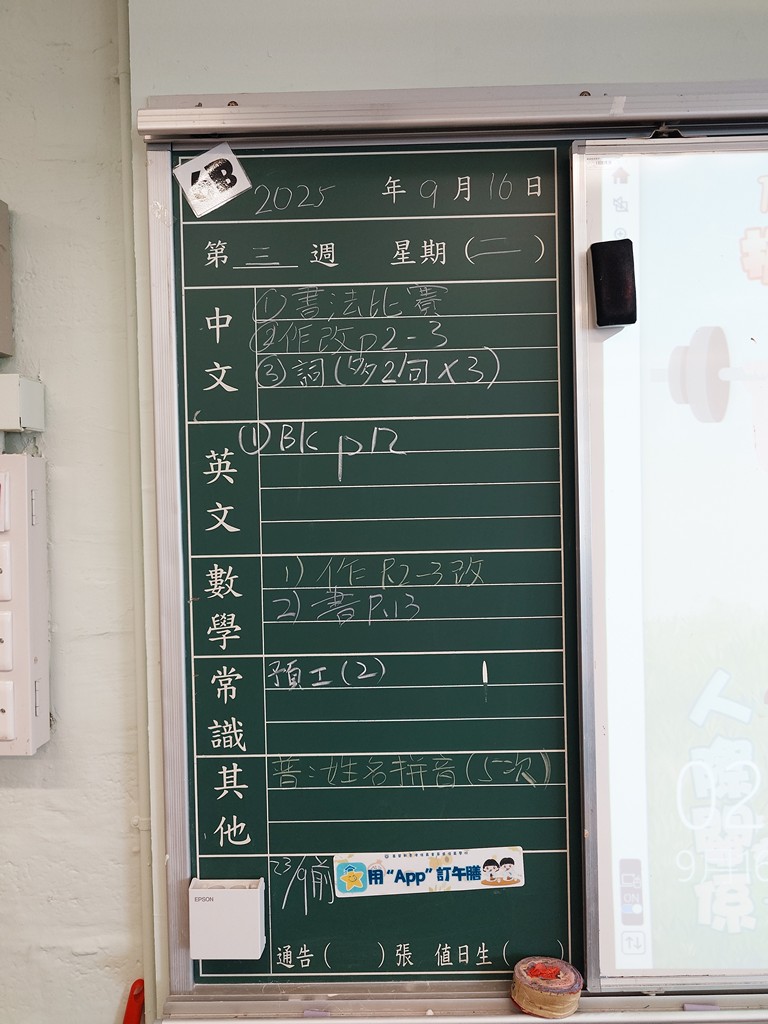 6B
2025 年 9 月 16 日
第 三 週 星期 (二)
中文
① 書法比賽
② 作改 p2-3
③ 詞 (抄2句 x 3)
英文
① BK p12
數學
1) 作 P.2-3改
2) 書 P.13
常識
預工 (2)
其他
普：姓名拼音 (5次)
23/9前
用 "App" 訂午膳
EPSON
通告 ( ) 張 值日生 ( )
ON
人際關係